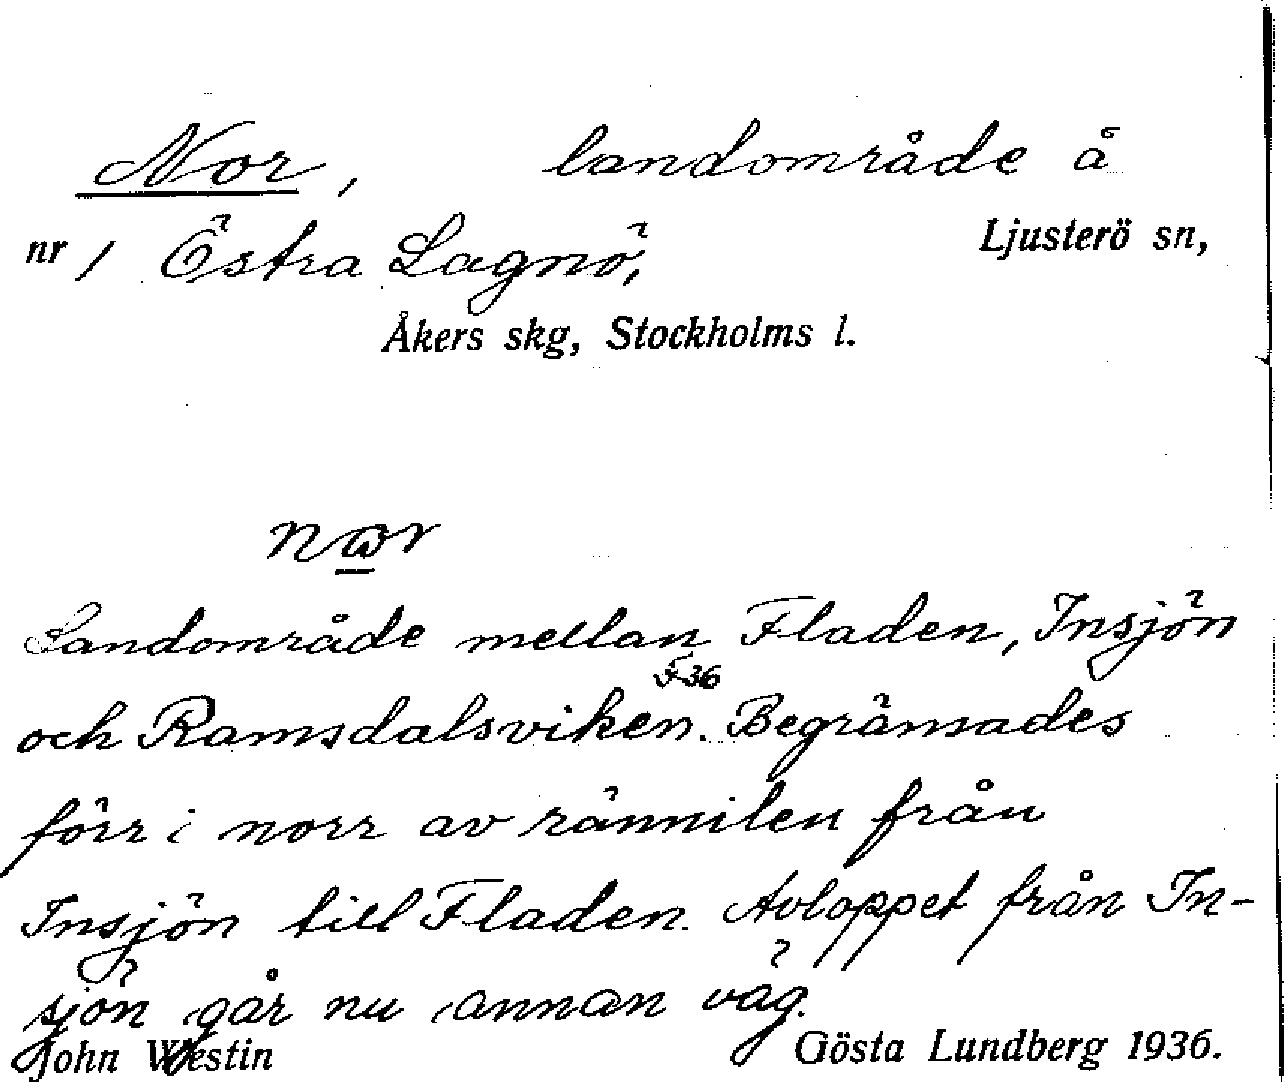 Nor, landområde å
nr 1 Östra Lagnö, Ljusterö sn,
Åkers skg, Stockholms l.
nor
Landområde mellan Fladen, Insjön
F36
och Ramsdalsviken. Begränsades
förr i norr av rännilen från
Insjön till Fladen. Avloppet från In-
sjön går nu annan väg.
John Westin Gösta Lundberg 1936.